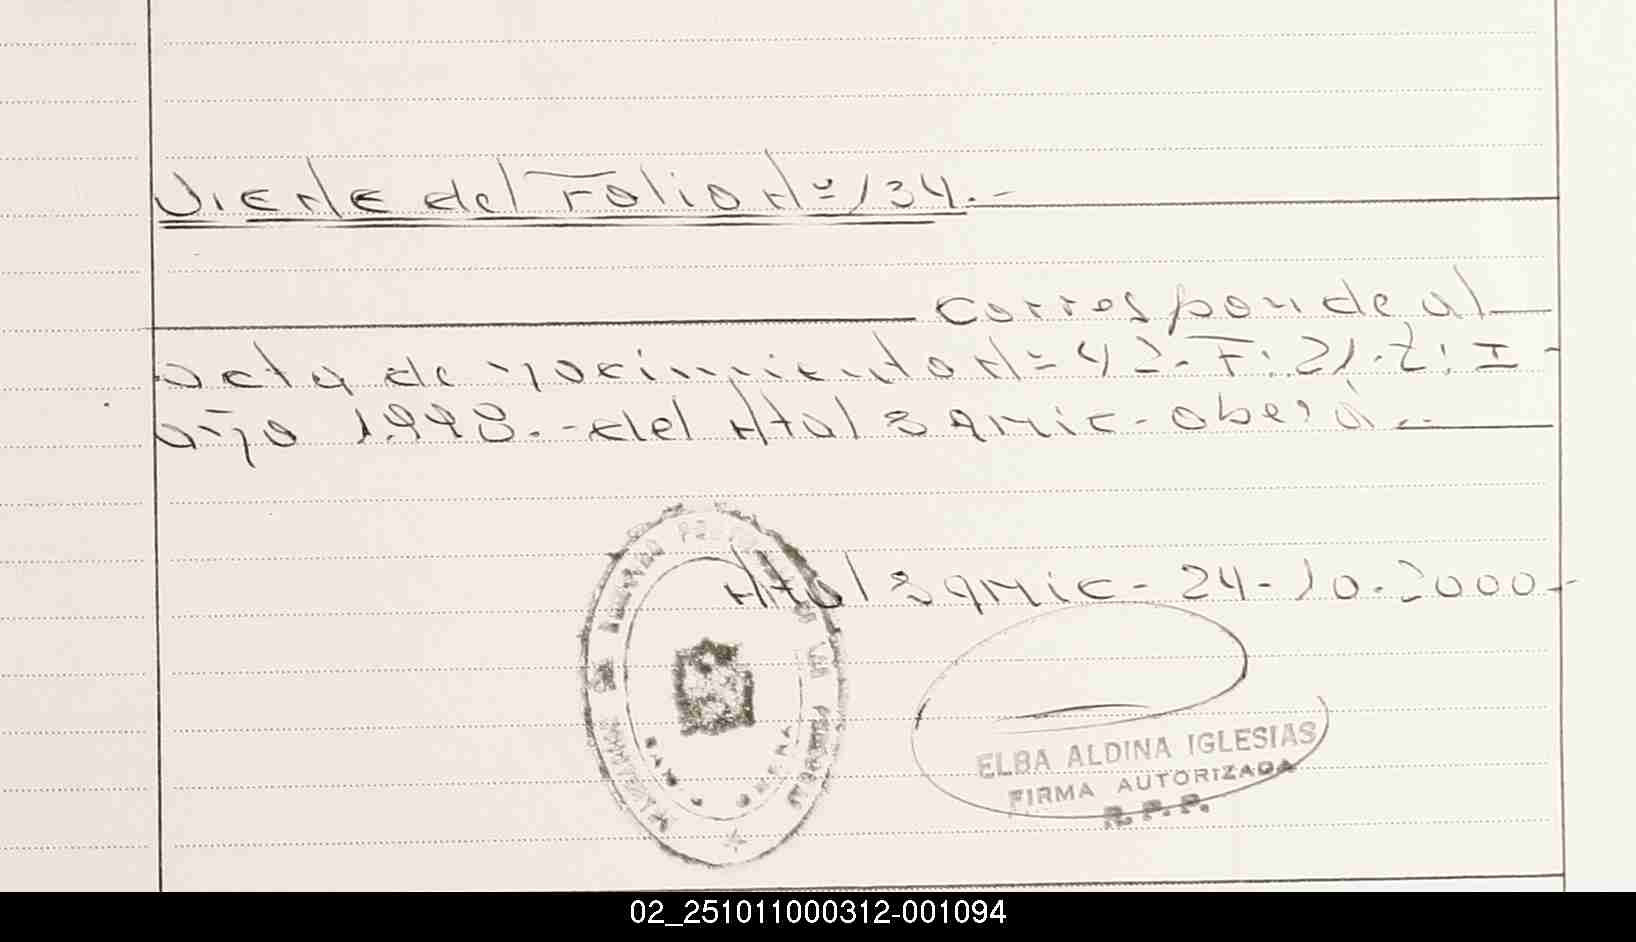 Viene del Folio Nº 134.-
Corresponde al
acta de nacimiento Nº 42. F: 21. T: I
año 1998.- del Htal Samic - Oberá..-
Htal Samic - 24-10-2000-
ELBA ALDINA IGLESIAS
FIRMA AUTORIZADA
R.P.P.
02_251011000312-001094